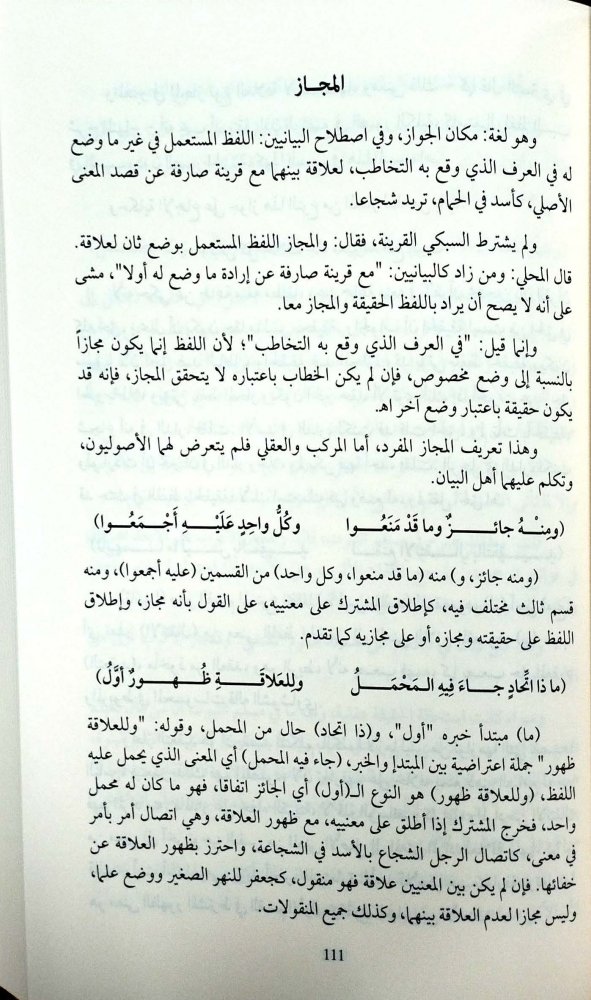 المجـاز
وهو لغة: مكان الجواز، وفي اصطلاح البيانيين: اللفظ المستعمل في غير ما وضع
له في العرف الذي وقع به التخاطب، لعلاقة بينهما مع قرينة صارفة عن قصد المعنى
الأصلي، كأسد في الحمام، تريد شجاعا.
ولم يشترط السبكي القرينة، فقال: والمجاز اللفظ المستعمل بوضع ثان لعلاقة.
قال المحلي: ومن زاد كالبيانيين: "مع قرينة صارفة عن إرادة ما وضع له أولا"، مشى
على أنه لا يصح أن يراد باللفظ الحقيقة والمجاز معا.
وإنما قيل: "في العرف الذي وقع به التخاطب"؛ لأن اللفظ إنما يكون مجازاً
بالنسبة إلى وضع مخصوص، فإن لم يكن الخطاب باعتباره لا يتحقق المجاز، فإنه قد
يكون حقيقة باعتبار وضع آخر اهـ.
وهذا تعريف المجاز المفرد، أما المركب والعقلي فلم يتعرض لهما الأصوليون،
وتكلم عليهما أهل البيان.
(ومِنْـهُ جائـزٌ وما قَدْ مَنَعُـوا وكُلُّ واحِدٍ عَلَيْـهِ أَجْـمَعُـوا)
(ومنه جائز، و) منه (ما قد منعوا، وكل واحد) من القسمين (عليه أجمعوا)، ومنه
قسم ثالث مختلف فيه، كإطلاق المشترك على معنييه، على القول بأنه مجاز، وإطلاق
اللفظ على حقيقته ومجازه أو على مجازيه كما تقدم.
(ما ذا اتِّحادٍ جـاءَ فِيهِ الـمَحْمَلُ ولِلعَلاقَـةِ ظُـهُـورٌ أوَّلُ)
(ما) مبتدأ خبره "أول"، و(ذا اتحاد) حال من المحمل، وقوله: "وللعلاقة
ظهور" جملة اعتراضية بين المبتدإ والخبر، (جاء فيه المحمل) أي المعنى الذي يحمل عليه
اللفظ، (وللعلاقة ظهور) هو النوع الـ(أول) أي الجائز اتفاقا، فهو ما كان له محمل
واحد، فخرج المشترك إذا أطلق على معنييه، مع ظهور العلاقة، وهي اتصال أمر بأمر
في معنى، كاتصال الرجل الشجاع بالأسد في الشجاعة، واحترز بظهور العلاقة عن
خفائها. فإن لم يكن بين المعنيين علاقة فهو منقول، كجعفر للنهر الصغير ووضع علما،
وليس مجازا لعدم العلاقة بينهما، وكذلك جميع المنقولات.
111